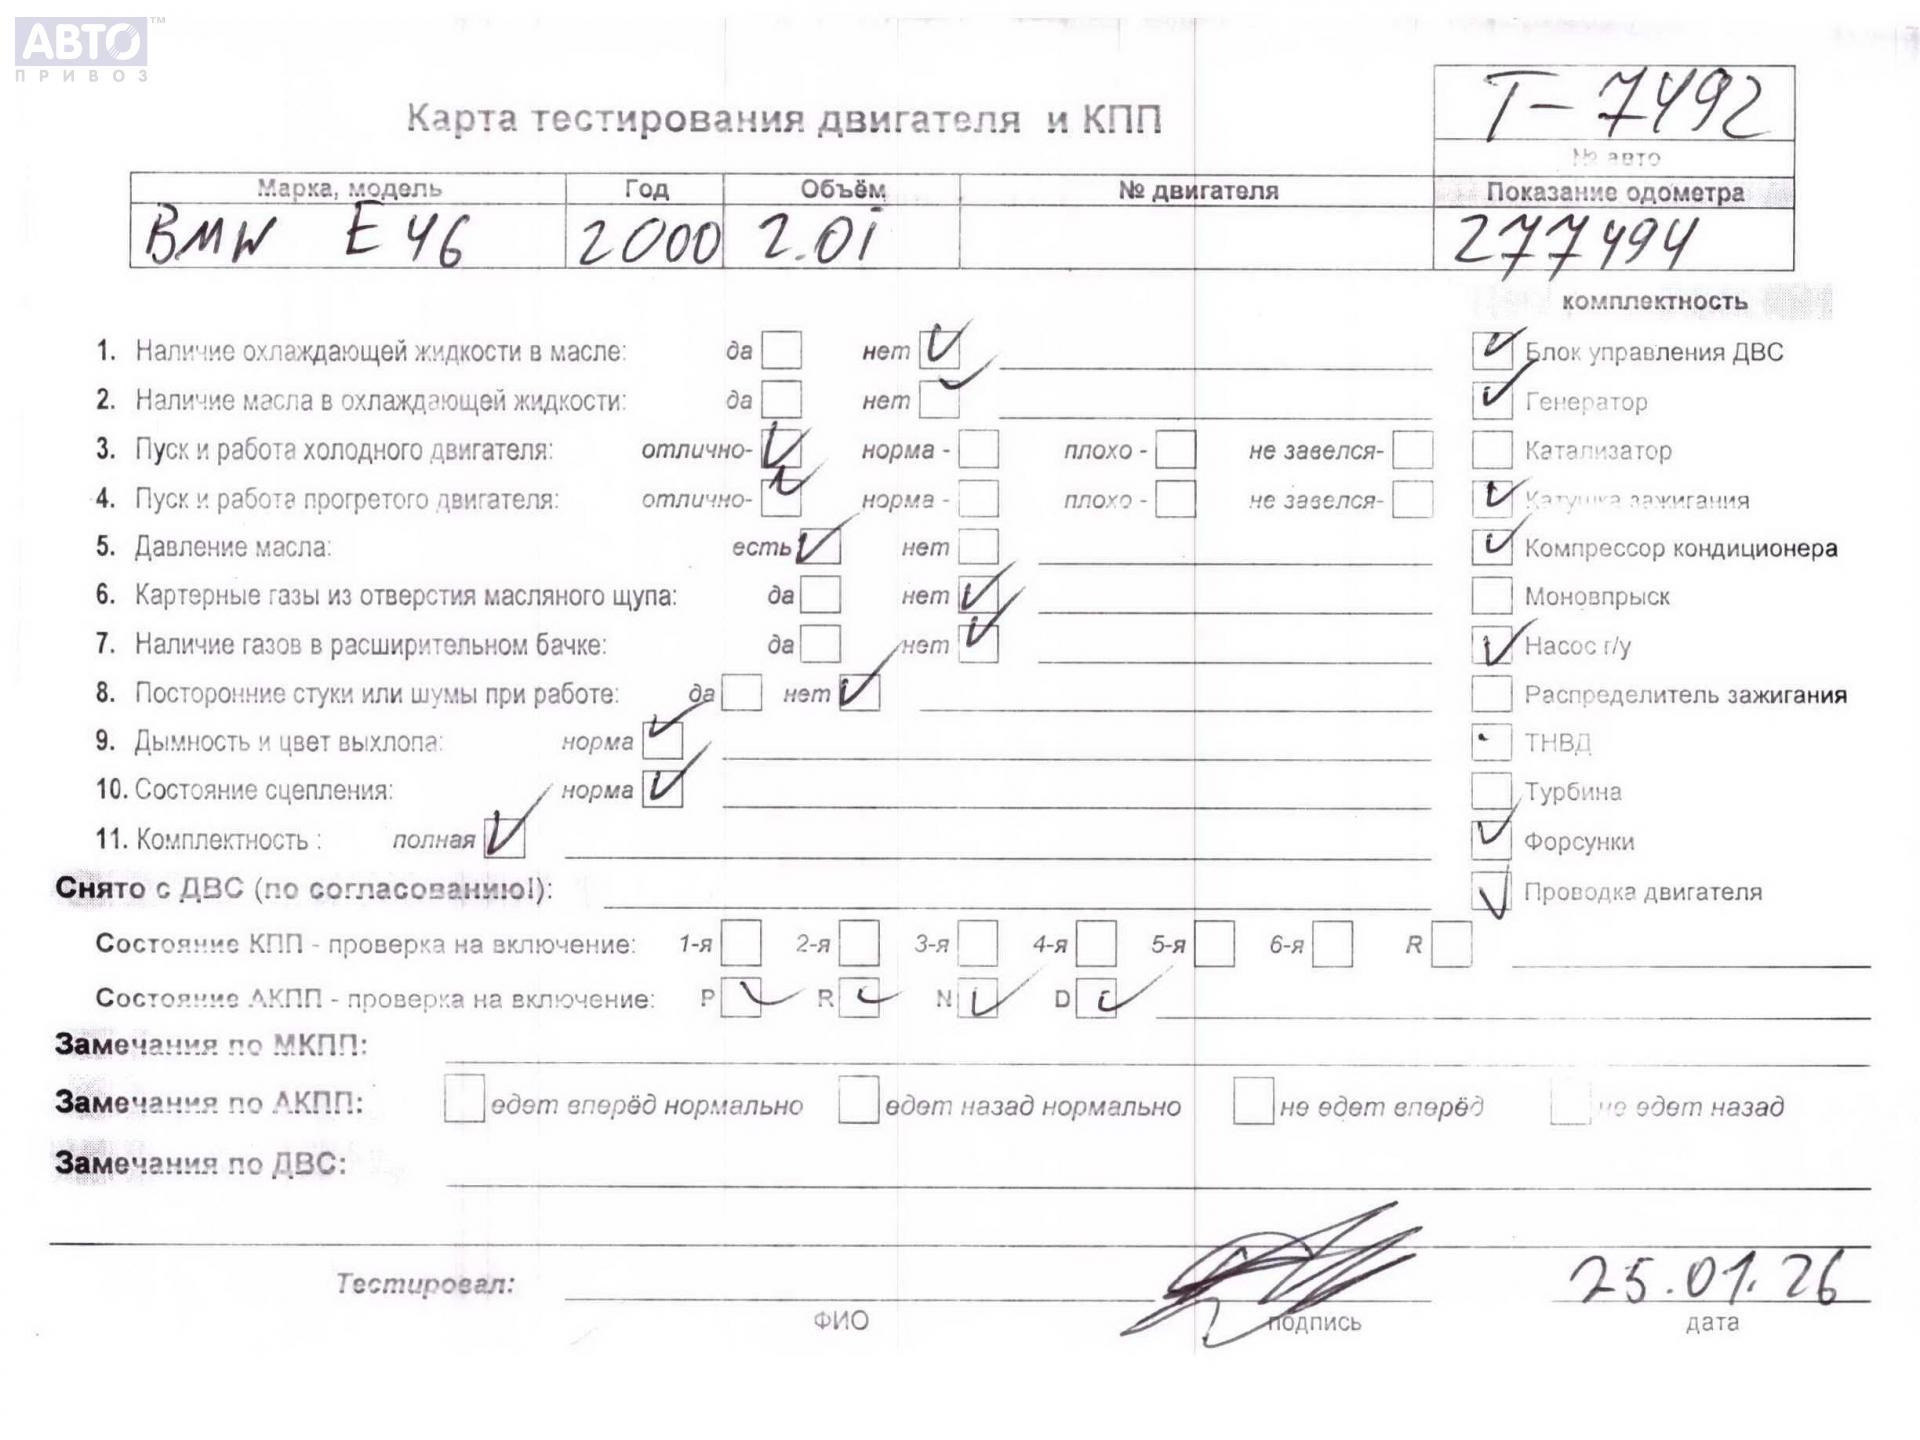 АВТО™
ПРИВОЗ
Т-7492
Карта тестирования двигателя и КПП
№ авто
Марка, модель Год Объём № двигателя Показание одометра
BMW E46 2000 2.0i 277494
комплектность
1. Наличие охлаждающей жидкости в масле: да нет Блок управления ДВС
2. Наличие масла в охлаждающей жидкости: да нет Генератор
3. Пуск и работа холодного двигателя: отлично- норма - плохо - не завелся- Катализатор
4. Пуск и работа прогретого двигателя: отлично- норма - плохо - не завелся- Катушка зажигания
5. Давление масла: есть нет Компрессор кондиционера
6. Картерные газы из отверстия масляного щупа: да нет Моновпрыск
7. Наличие газов в расширительном бачке: да нет Насос г/у
8. Посторонние стуки или шумы при работе: да нет Распределитель зажигания
9. Дымность и цвет выхлопа: норма ТНВД
10. Состояние сцепления: норма Турбина
11. Комплектность : полная Форсунки
Снято с ДВС (по согласованию!): Проводка двигателя
Состояние КПП - проверка на включение: 1-я 2-я 3-я 4-я 5-я 6-я R
Состояние АКПП - проверка на включение: P R N D
Замечания по МКПП:
Замечания по АКПП: едет вперёд нормально едет назад нормально не едет вперёд не едет назад
Замечания по ДВС:
Тестировал: 25.01.26
ФИО подпись дата